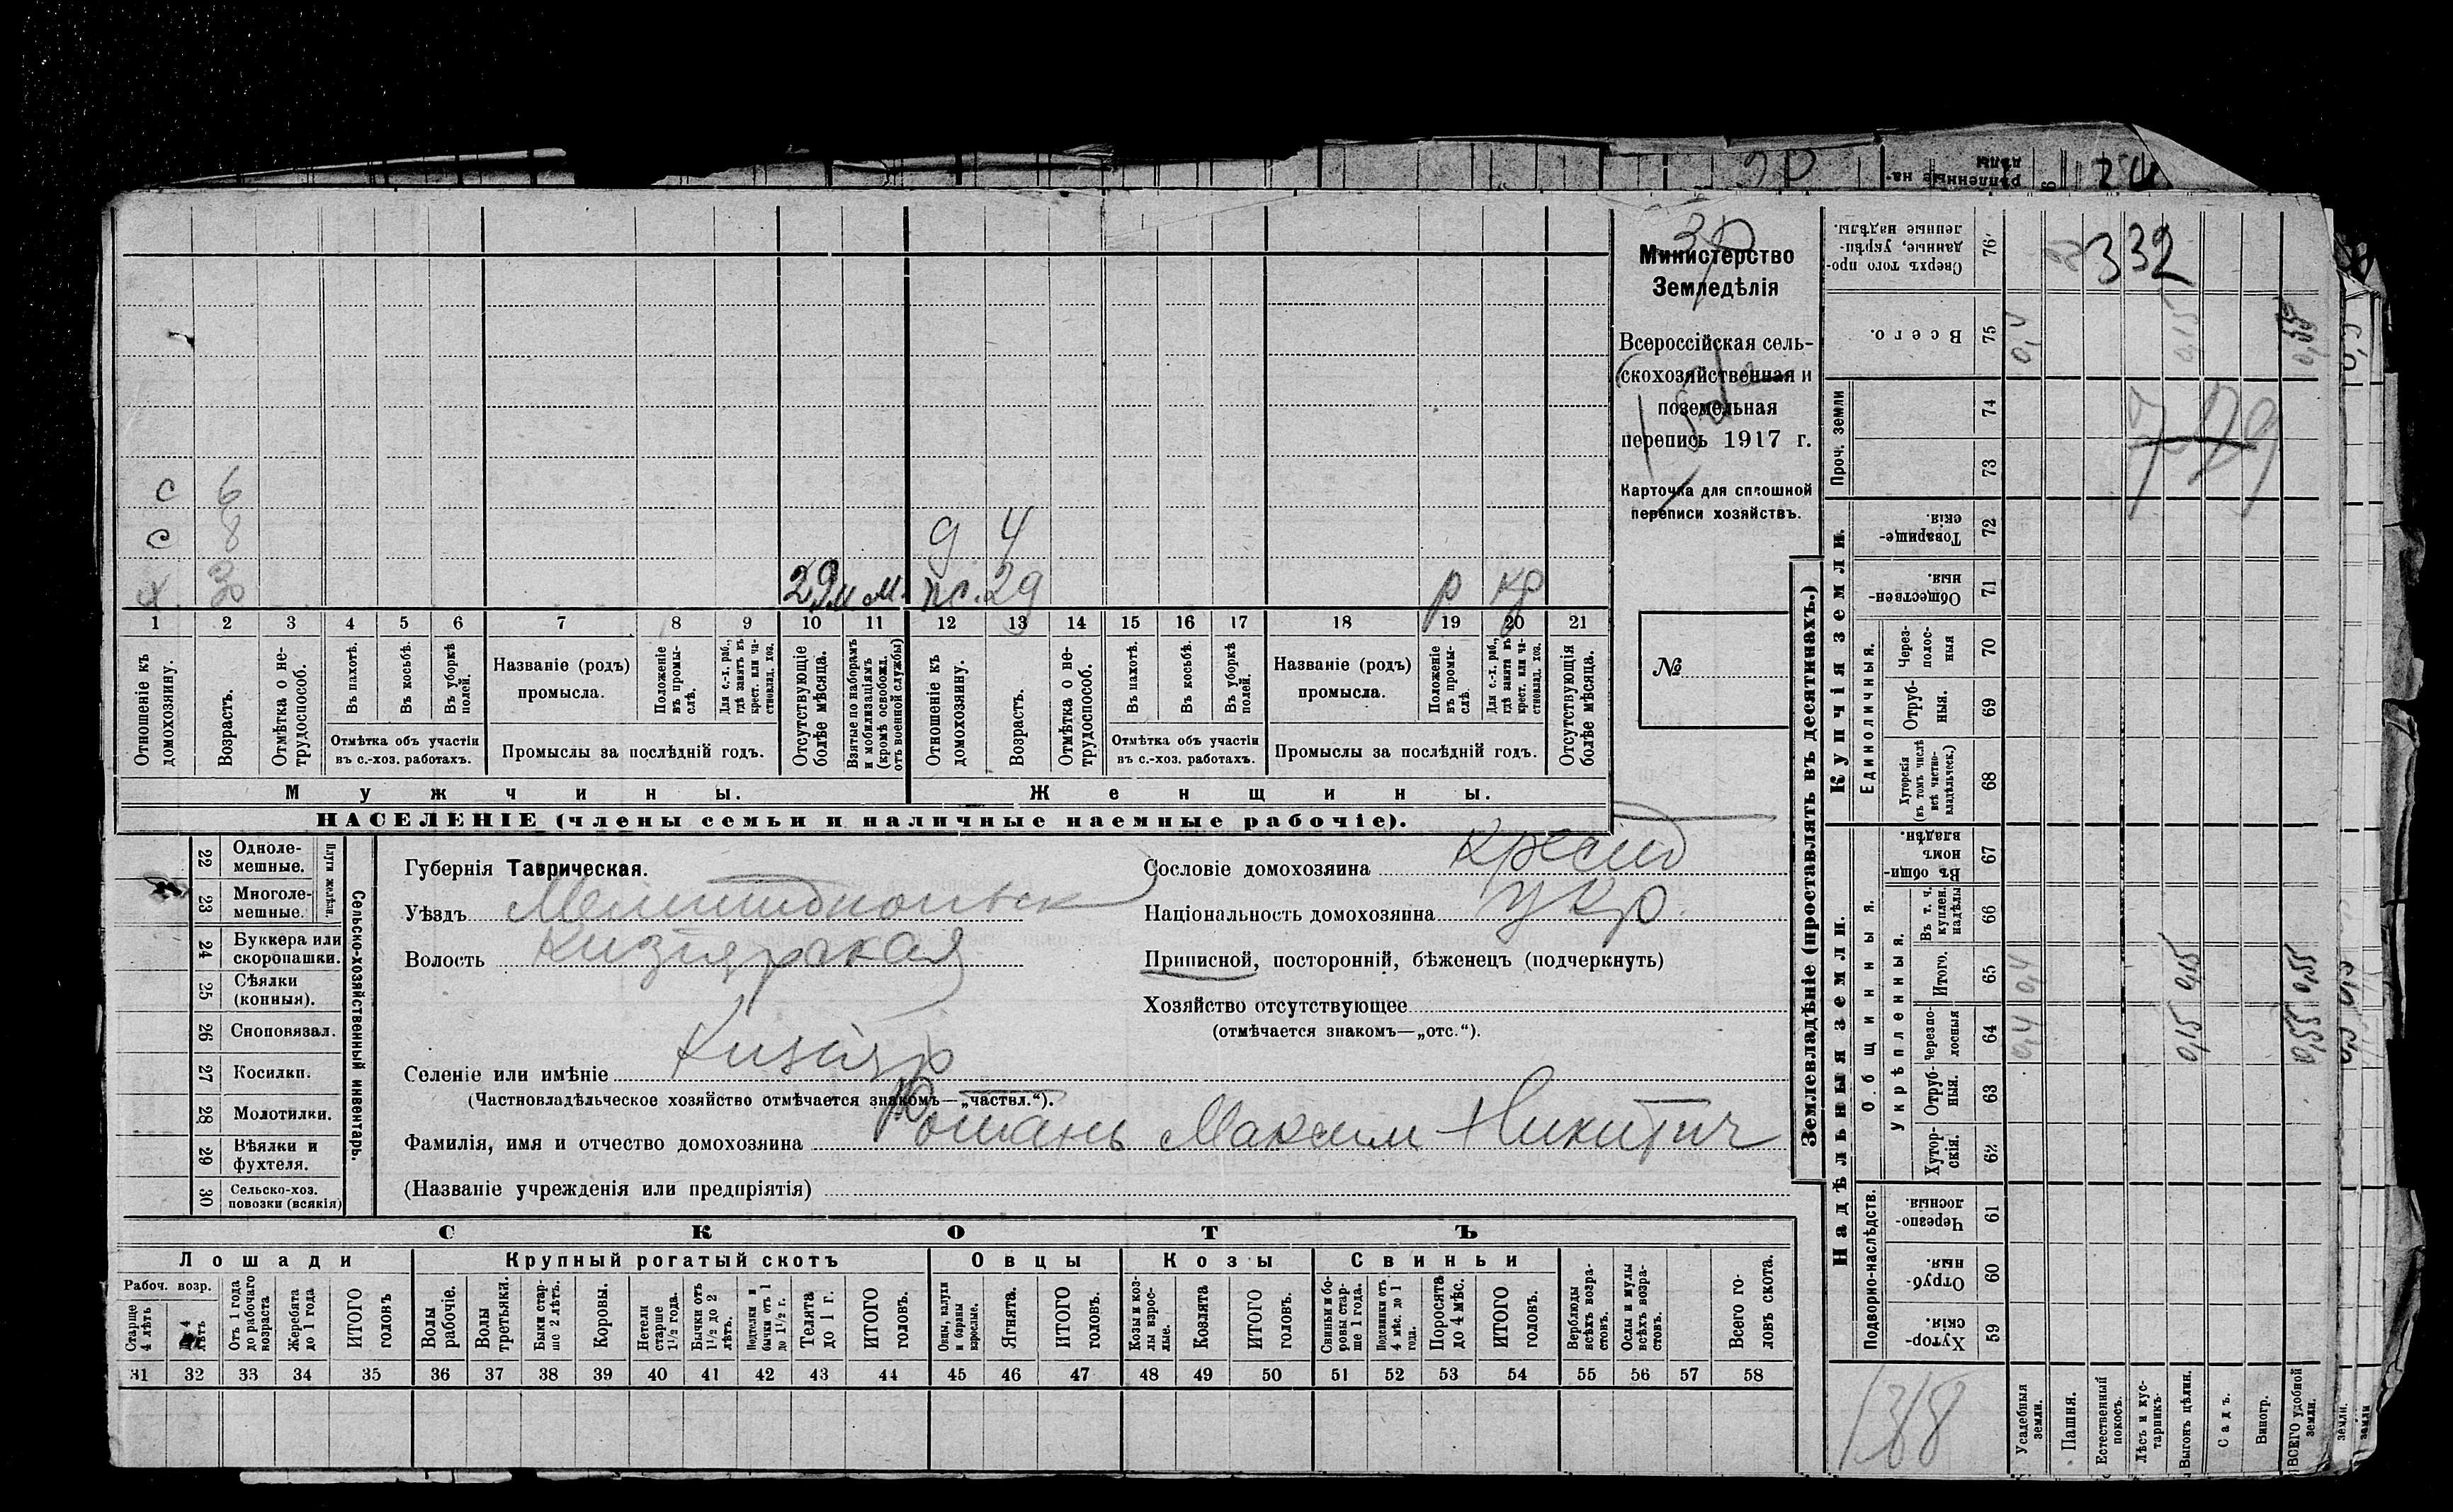 Министерство
Земледѣлія
Всероссійская сель-
скохозяйственная и
поземельная
перепись 1917 г.
Карточка для сплошной
переписи хозяйствъ.
№
с 6
с 8
д 4
х. 30
29 м м.
ж. 29
р кр
1 2 3 4 5 6 7 8 9 10 11 12 13 14 15 16 17 18 19 20 21
Отношеніе къ домохозяину.
Возрастъ.
Отмѣтка о не-трудоспособ.
Въ пахотѣ.
Въ косьбѣ.
Въ уборкѣ полей.
Отмѣтка объ участіи
въ с.-хоз. работахъ.
Названіе (родъ)
промысла.
Положеніе въ промы-слѣ.
Для с.-х. раб., гдѣ занятъ въ крест. или ча-стновлад. хоз.
Промыслы за послѣдній годъ.
Отсутствующіе болѣе мѣсяца.
Взятые по наборамъ и мобилизаціямъ (кромѣ освобожд. отъ военной службы)
Отношеніе къ домохозяину.
Возрастъ.
Отмѣтка о не-трудоспособ.
Въ пахотѣ.
Въ косьбѣ.
Въ уборкѣ полей.
Отмѣтка объ участіи
въ с.-хоз. работахъ.
Названіе (родъ)
промысла.
Положеніе въ промы-слѣ.
Для с.-х. раб., гдѣ занята въ крест. или ча-стновлад. хоз.
Промыслы за послѣдній годъ.
Отсутствующія болѣе мѣсяца.
Мужчины.
Женщины.
НАСЕЛЕНІЕ (члены семьи и наличные наемные рабочіе).
22 Одноле-мешные.
23 Многоле-мешные.
Плуги желѣзн.
24 Буккера или скоропашки.
25 Сѣялки (конныя).
26 Сноповязал.
27 Косилки.
28 Молотилки.
29 Вѣялки и фухтеля.
30 Сельско-хоз. повозки (всякія)
Сельско-хозяйственный инвентарь.
Губернія Таврическая.
Уѣздъ Мелитопольск
Волость Кизіярская
Селеніе или имѣніе Кизіяр
(Частновладѣльческое хозяйство отмѣчается знакомъ—„частвл.“).
Фамилія, имя и отчество домохозяина Юшань Максим Никитич
(Названіе учрежденія или предпріятія)
Сословіе домохозяина крест
Національность домохозяина укр.
Приписной, посторонній, бѣженецъ (подчеркнуть)
Хозяйство отсутствующее
(отмѣчается знакомъ—„отс.“).
СКОТЪ
Лошади
Крупный рогатый скотъ
Овцы
Козы
Свиньи
Рабоч. возр.
Старше 4 лѣтъ
4 лѣтъ
Отъ 1 года до рабочаго возраста
Жеребята до 1 года
ИТОГО головъ
Волы рабочіе.
Волы третьяки.
Быки стар-ше 2 лѣтъ.
Коровы.
Нетели старше 1½ года.
Бычки отъ 1½ до 2 лѣтъ.
Подтелки и бычки отъ 1 до 1½ г.
Телята до 1 г.
ИТОГО головъ.
Овцы, валухи и бараны взрослые.
Ягнята.
ИТОГО головъ.
Козы и коз-лы взрос-лые.
Козлята
ИТОГО головъ.
Свиньи и бо-ровы стар-ше 1 года.
Подсвинки отъ 4 мѣс. до 1 года.
Поросята до 4 мѣс.
ИТОГО головъ.
Верблюды всѣхъ возра-стовъ.
Ослы и мулы всѣхъ возра-стовъ.
Всего го-ловъ скота.
31 32 33 34 35 36 37 38 39 40 41 42 43 44 45 46 47 48 49 50 51 52 53 54 55 56 57 58
Землевладѣніе (проставлять въ десятинахъ.)
Надѣльныя земли.
Купчія земли.
Проч. земли
Подворно-наслѣдств.
Общинныя.
Укрѣпленныя.
Единоличныя.
Хутор-скія. 59
Отруб-ныя. 60
Черезпо-лосныя 61
Хутор-скія. 62
Отруб-ныя. 63
Черезпо-лосныя 64
Итого. 65
Въ т. ч. куплен. надѣлы 66
Въ общин-номъ владѣн. 67
Хуторскія (въ томъ числѣ всѣ частно-владѣльческ.) 68
Отруб-ныя. 69
Через-полос-ныя 70
Обществен-ныя. 71
Товарище-скія. 72
73
74
Всего. 75
Сверхъ того про-данные, укрѣп-ленные надѣлы. 76
Усадебныя земли. 0,4 0,4 0,4
Пашня.
Естественный покосъ.
Лѣсъ и кус-тарникъ.
Выгонъ цѣлин. 0,15 0,15 0,15
Садъ.
Виногр.
ВСЕГО удобной земли. 0,55 0,55 0,55
332